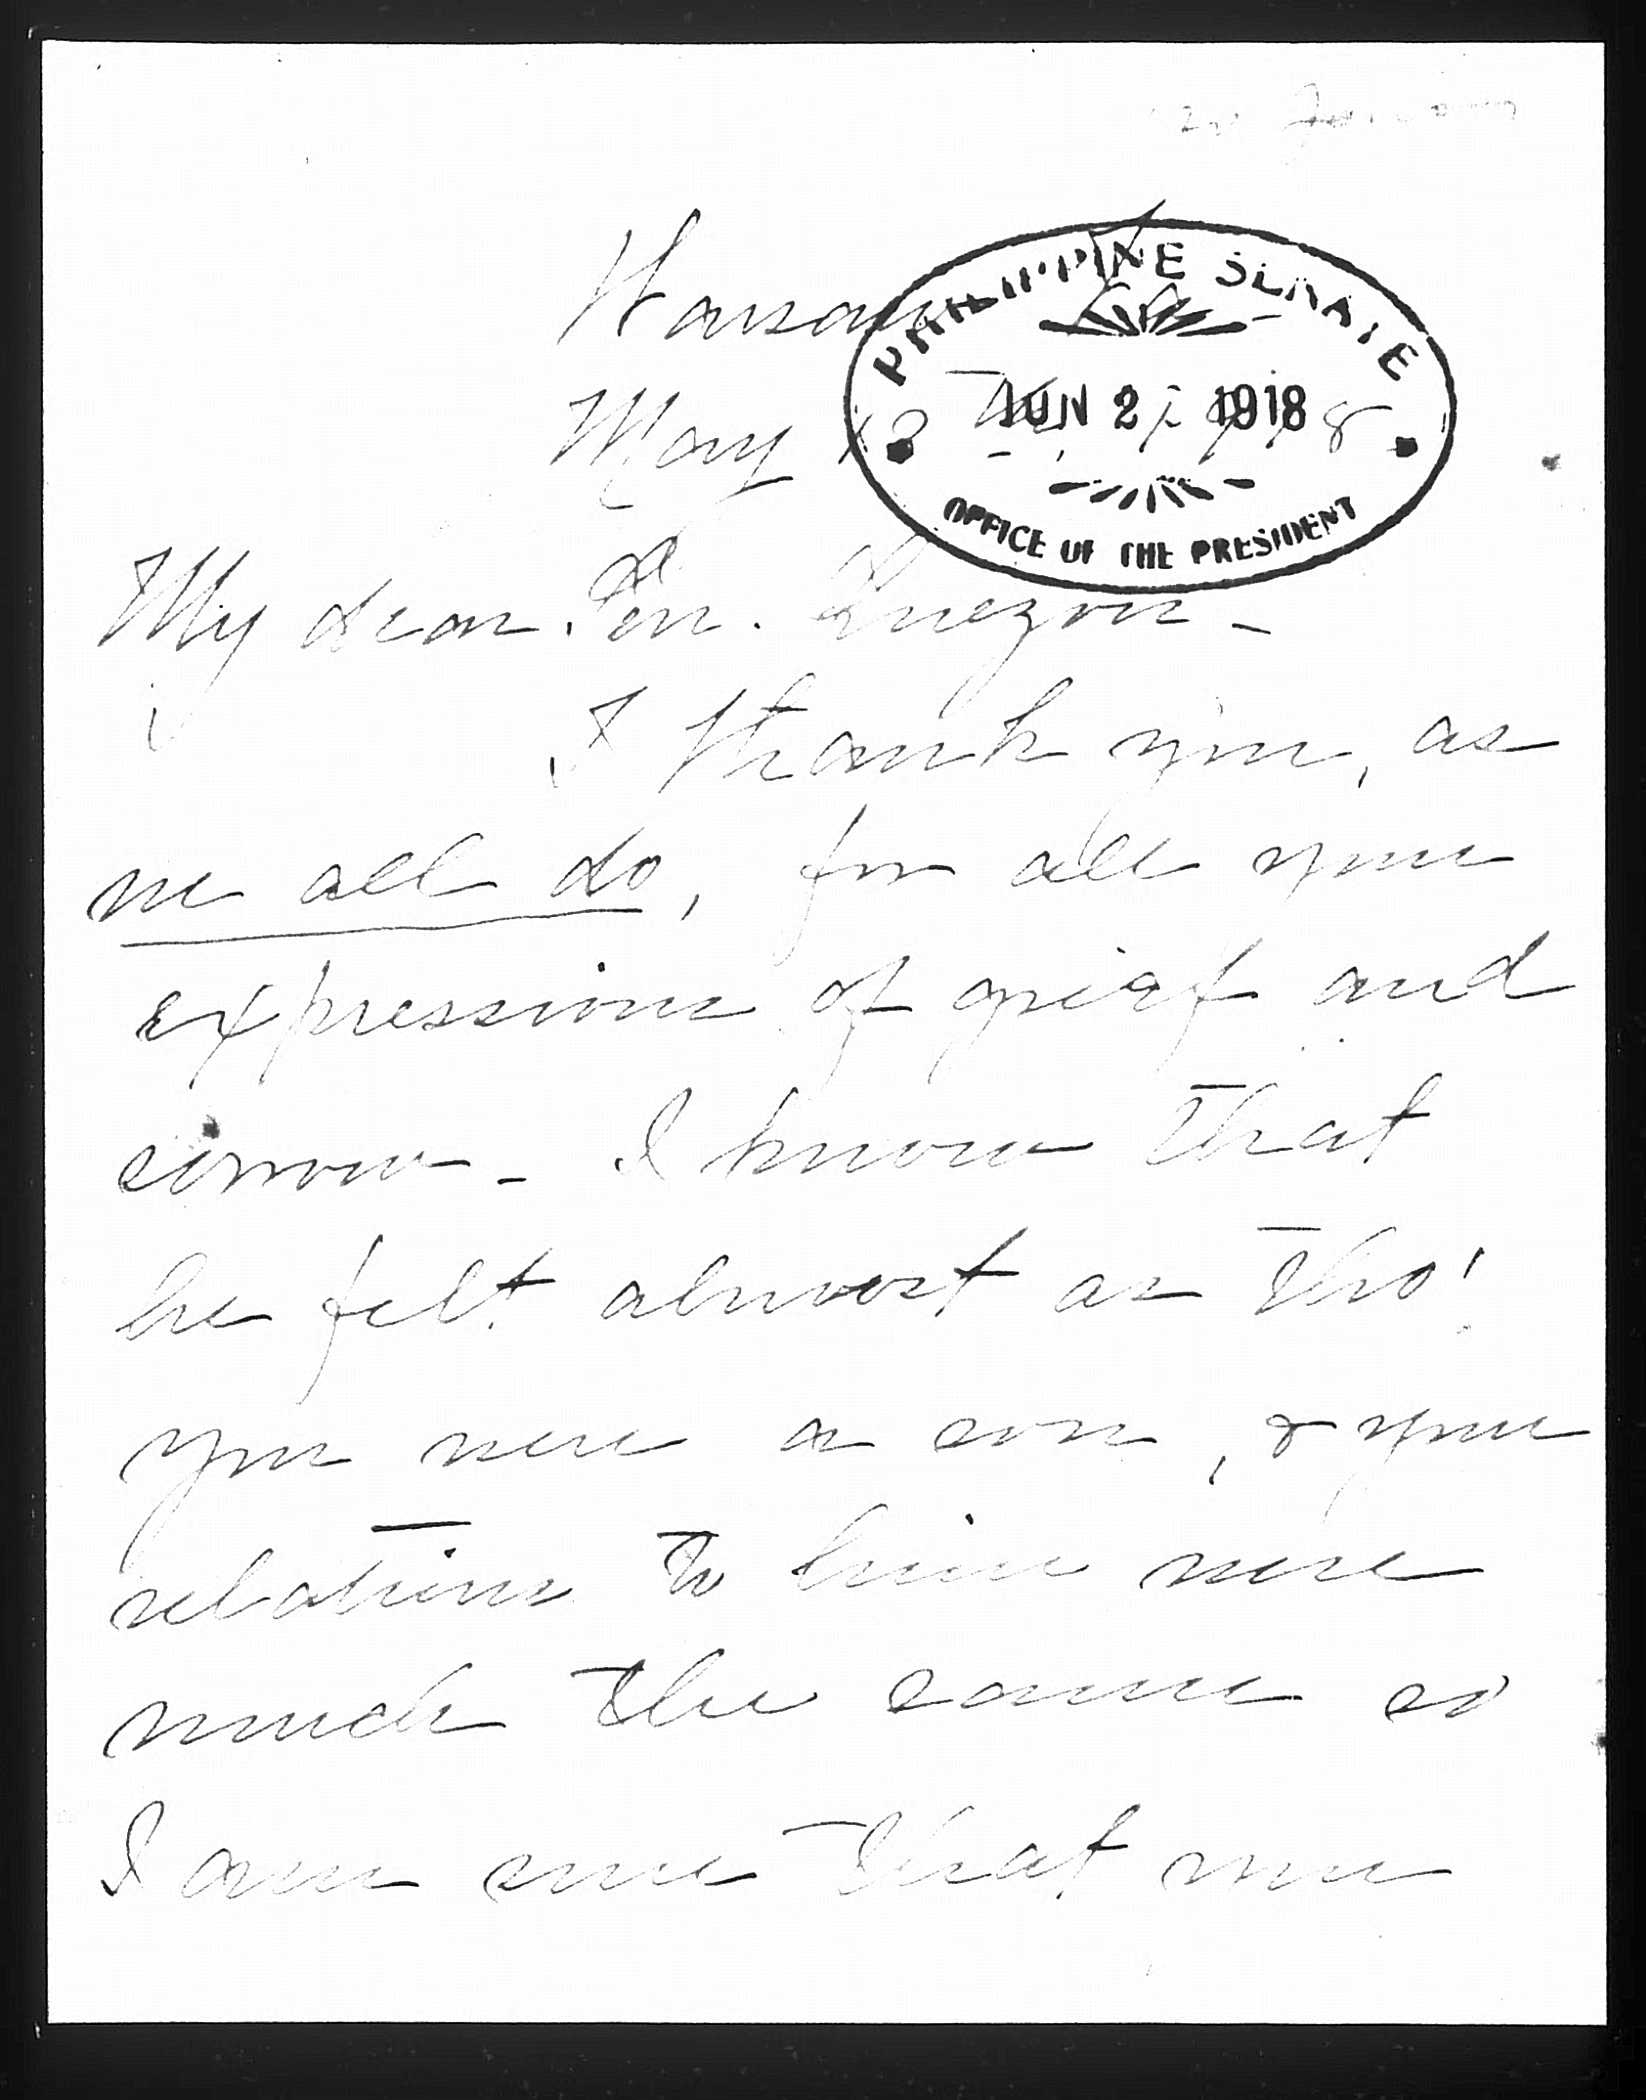 Warsaw Va -
PHILIPPINE SENATE
JUN 1918
May 1918
OFFICE OF THE PRESIDENT
My dear Sen. Quezon -
I thank you, as
we all do, for all your
expressions of grief and
sorrow - I know that
he felt almost as tho'
you were a son, & your
relations to him were
much the same so
I am sure that our